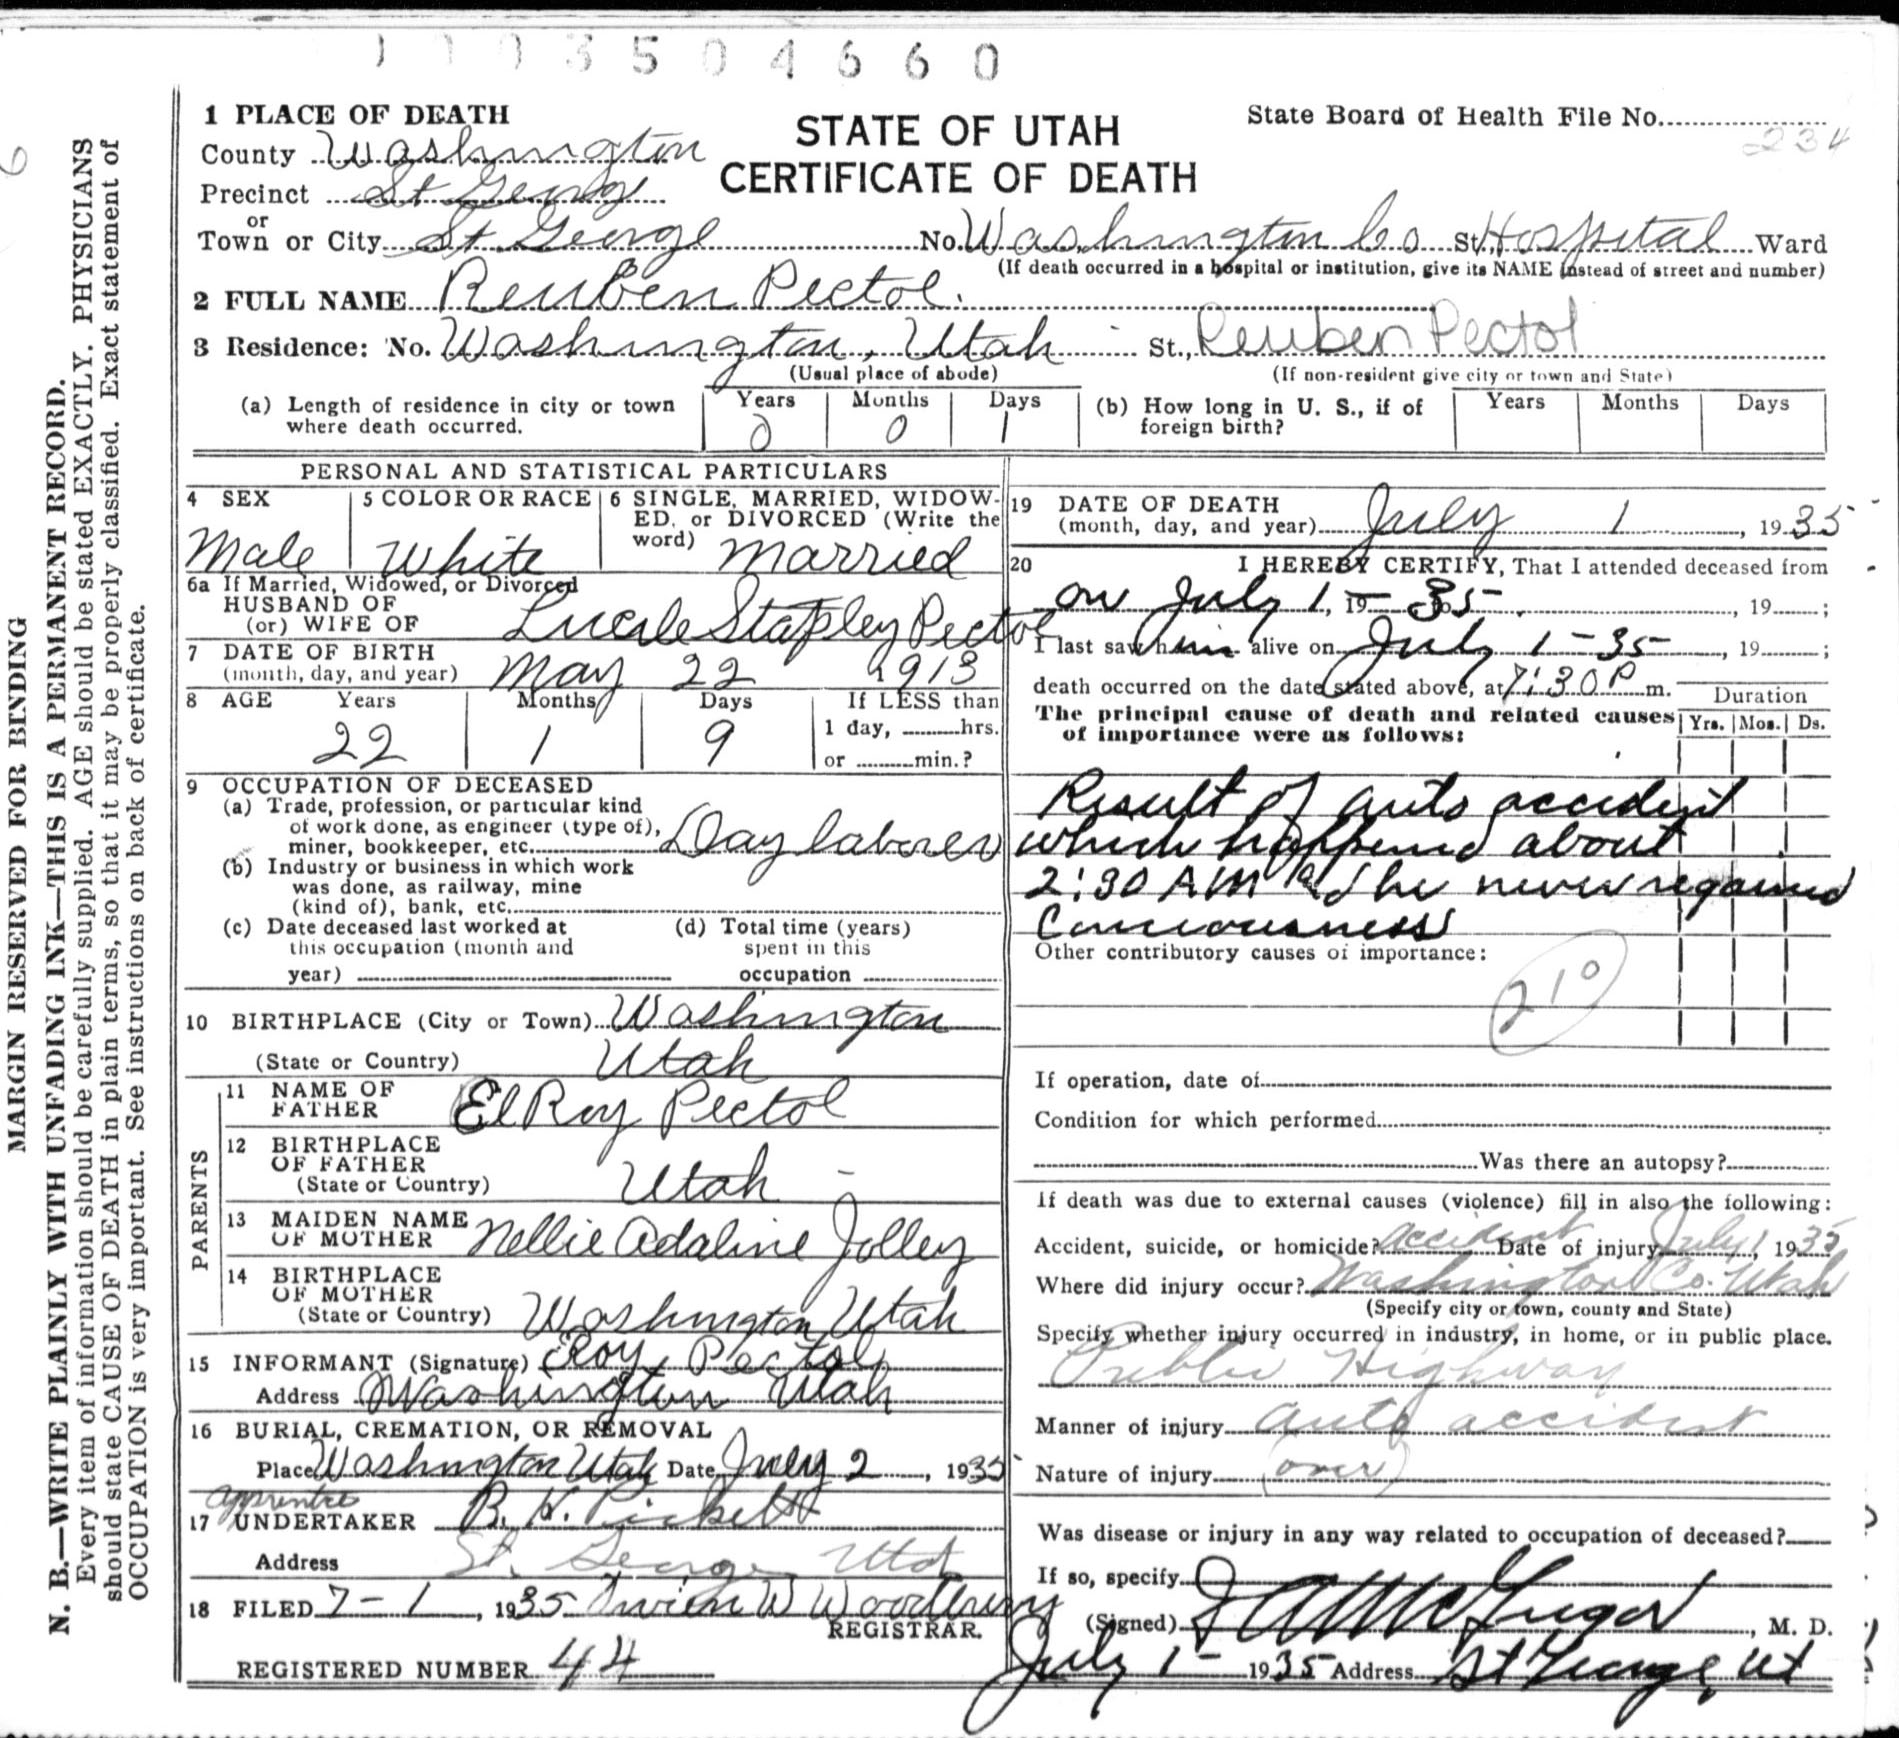 1 1 0 3 5 0 4 6 6 0
1 PLACE OF DEATH
STATE OF UTAH
CERTIFICATE OF DEATH
State Board of Health File No.
234
County Washington
Precinct St George
or
Town or City St George No. Washington Co St., Hospital Ward
(If death occurred in a hospital or institution, give its NAME instead of street and number)
2 FULL NAME Reuben Pectol.
3 Residence: No. Washington, Utah St., Reuben Pectol
(Usual place of abode) (If non-resident give city or town and State)
(a) Length of residence in city or town where death occurred. Years 0 Months 0 Days 1
(b) How long in U. S., if of foreign birth? Years Months Days
PERSONAL AND STATISTICAL PARTICULARS
4 SEX Male
5 COLOR OR RACE White
6 SINGLE, MARRIED, WIDOWED, or DIVORCED (Write the word) Married
6a If Married, Widowed, or Divorced
HUSBAND OF
(or) WIFE OF Lucile Stapley Pectol
7 DATE OF BIRTH
(month, day, and year) May 22 1913
8 AGE Years Months Days If LESS than
22 1 9 1 day, hrs.
or min.?
9 OCCUPATION OF DECEASED
(a) Trade, profession, or particular kind
of work done, as engineer (type of),
miner, bookkeeper, etc. Day laborer
(b) Industry or business in which work
was done, as railway, mine
(kind of), bank, etc.
(c) Date deceased last worked at
this occupation (month and
year)
(d) Total time (years)
spent in this
occupation
10 BIRTHPLACE (City or Town) Washington
(State or Country) Utah
PARENTS
11 NAME OF
FATHER El Roy Pectol
12 BIRTHPLACE
OF FATHER
(State or Country) Utah
13 MAIDEN NAME
OF MOTHER Nellie Adaline Jolley
14 BIRTHPLACE
OF MOTHER
(State or Country) Washington Utah
15 INFORMANT (Signature) Roy Pectol
Address Washington Utah
16 BURIAL, CREMATION, OR REMOVAL
Place Washington Utah Date July 2, 1935
apprentice
17 UNDERTAKER B. H. Pickett
Address St. George Utah
18 FILED 7-1, 1935 W Woodbury
REGISTRAR.
REGISTERED NUMBER 44
19 DATE OF DEATH
(month, day, and year) July 1, 1935
20 I HEREBY CERTIFY, That I attended deceased from
on July 1, 19-35, 19 ;
I last saw him alive on July 1-35, 19 ;
death occurred on the date stated above, at 7:30 P m.
Duration
The principal cause of death and related causes
of importance were as follows:
Yrs. Mos. Ds.
Result of auto accident
which happened about
2:30 AM &d he never regained
Conciousness
Other contributory causes of importance:
210
If operation, date of
Condition for which performed
Was there an autopsy?
If death was due to external causes (violence) fill in also the following:
Accident, suicide, or homicide? accident Date of injury July 1, 1935
Where did injury occur? Washington Co. Utah
(Specify city or town, county and State)
Specify whether injury occurred in industry, in home, or in public place.
Public Highway
Manner of injury auto accident
Nature of injury (over)
Was disease or injury in any way related to occupation of deceased?
If so, specify
(Signed) McGregor, M. D.
July 1- 1935 Address St George, Ut
MARGIN RESERVED FOR BINDING
N. B.—WRITE PLAINLY WITH UNFADING INK—THIS IS A PERMANENT RECORD.
Every item of information should be carefully supplied. AGE should be stated EXACTLY. PHYSICIANS
should state CAUSE OF DEATH in plain terms, so that it may be properly classified. Exact statement of
OCCUPATION is very important. See instructions on back of certificate.